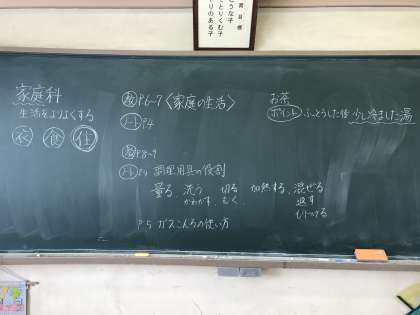 育目標
うな子
とりくむ子
やりのある子
家庭科
生活をよりよくする
衣 食 住
教P.6~7〈家庭の生活〉
ノートP.4
教P.8~9
ノートP.9 調理用具の役割
量る、洗う 切る 加熱する、混ぜる
かわかす、むく、 返す
もりつける
P.5 ガスこんろの使い方
お茶
ポイント ふっとうした後 少し冷ました湯